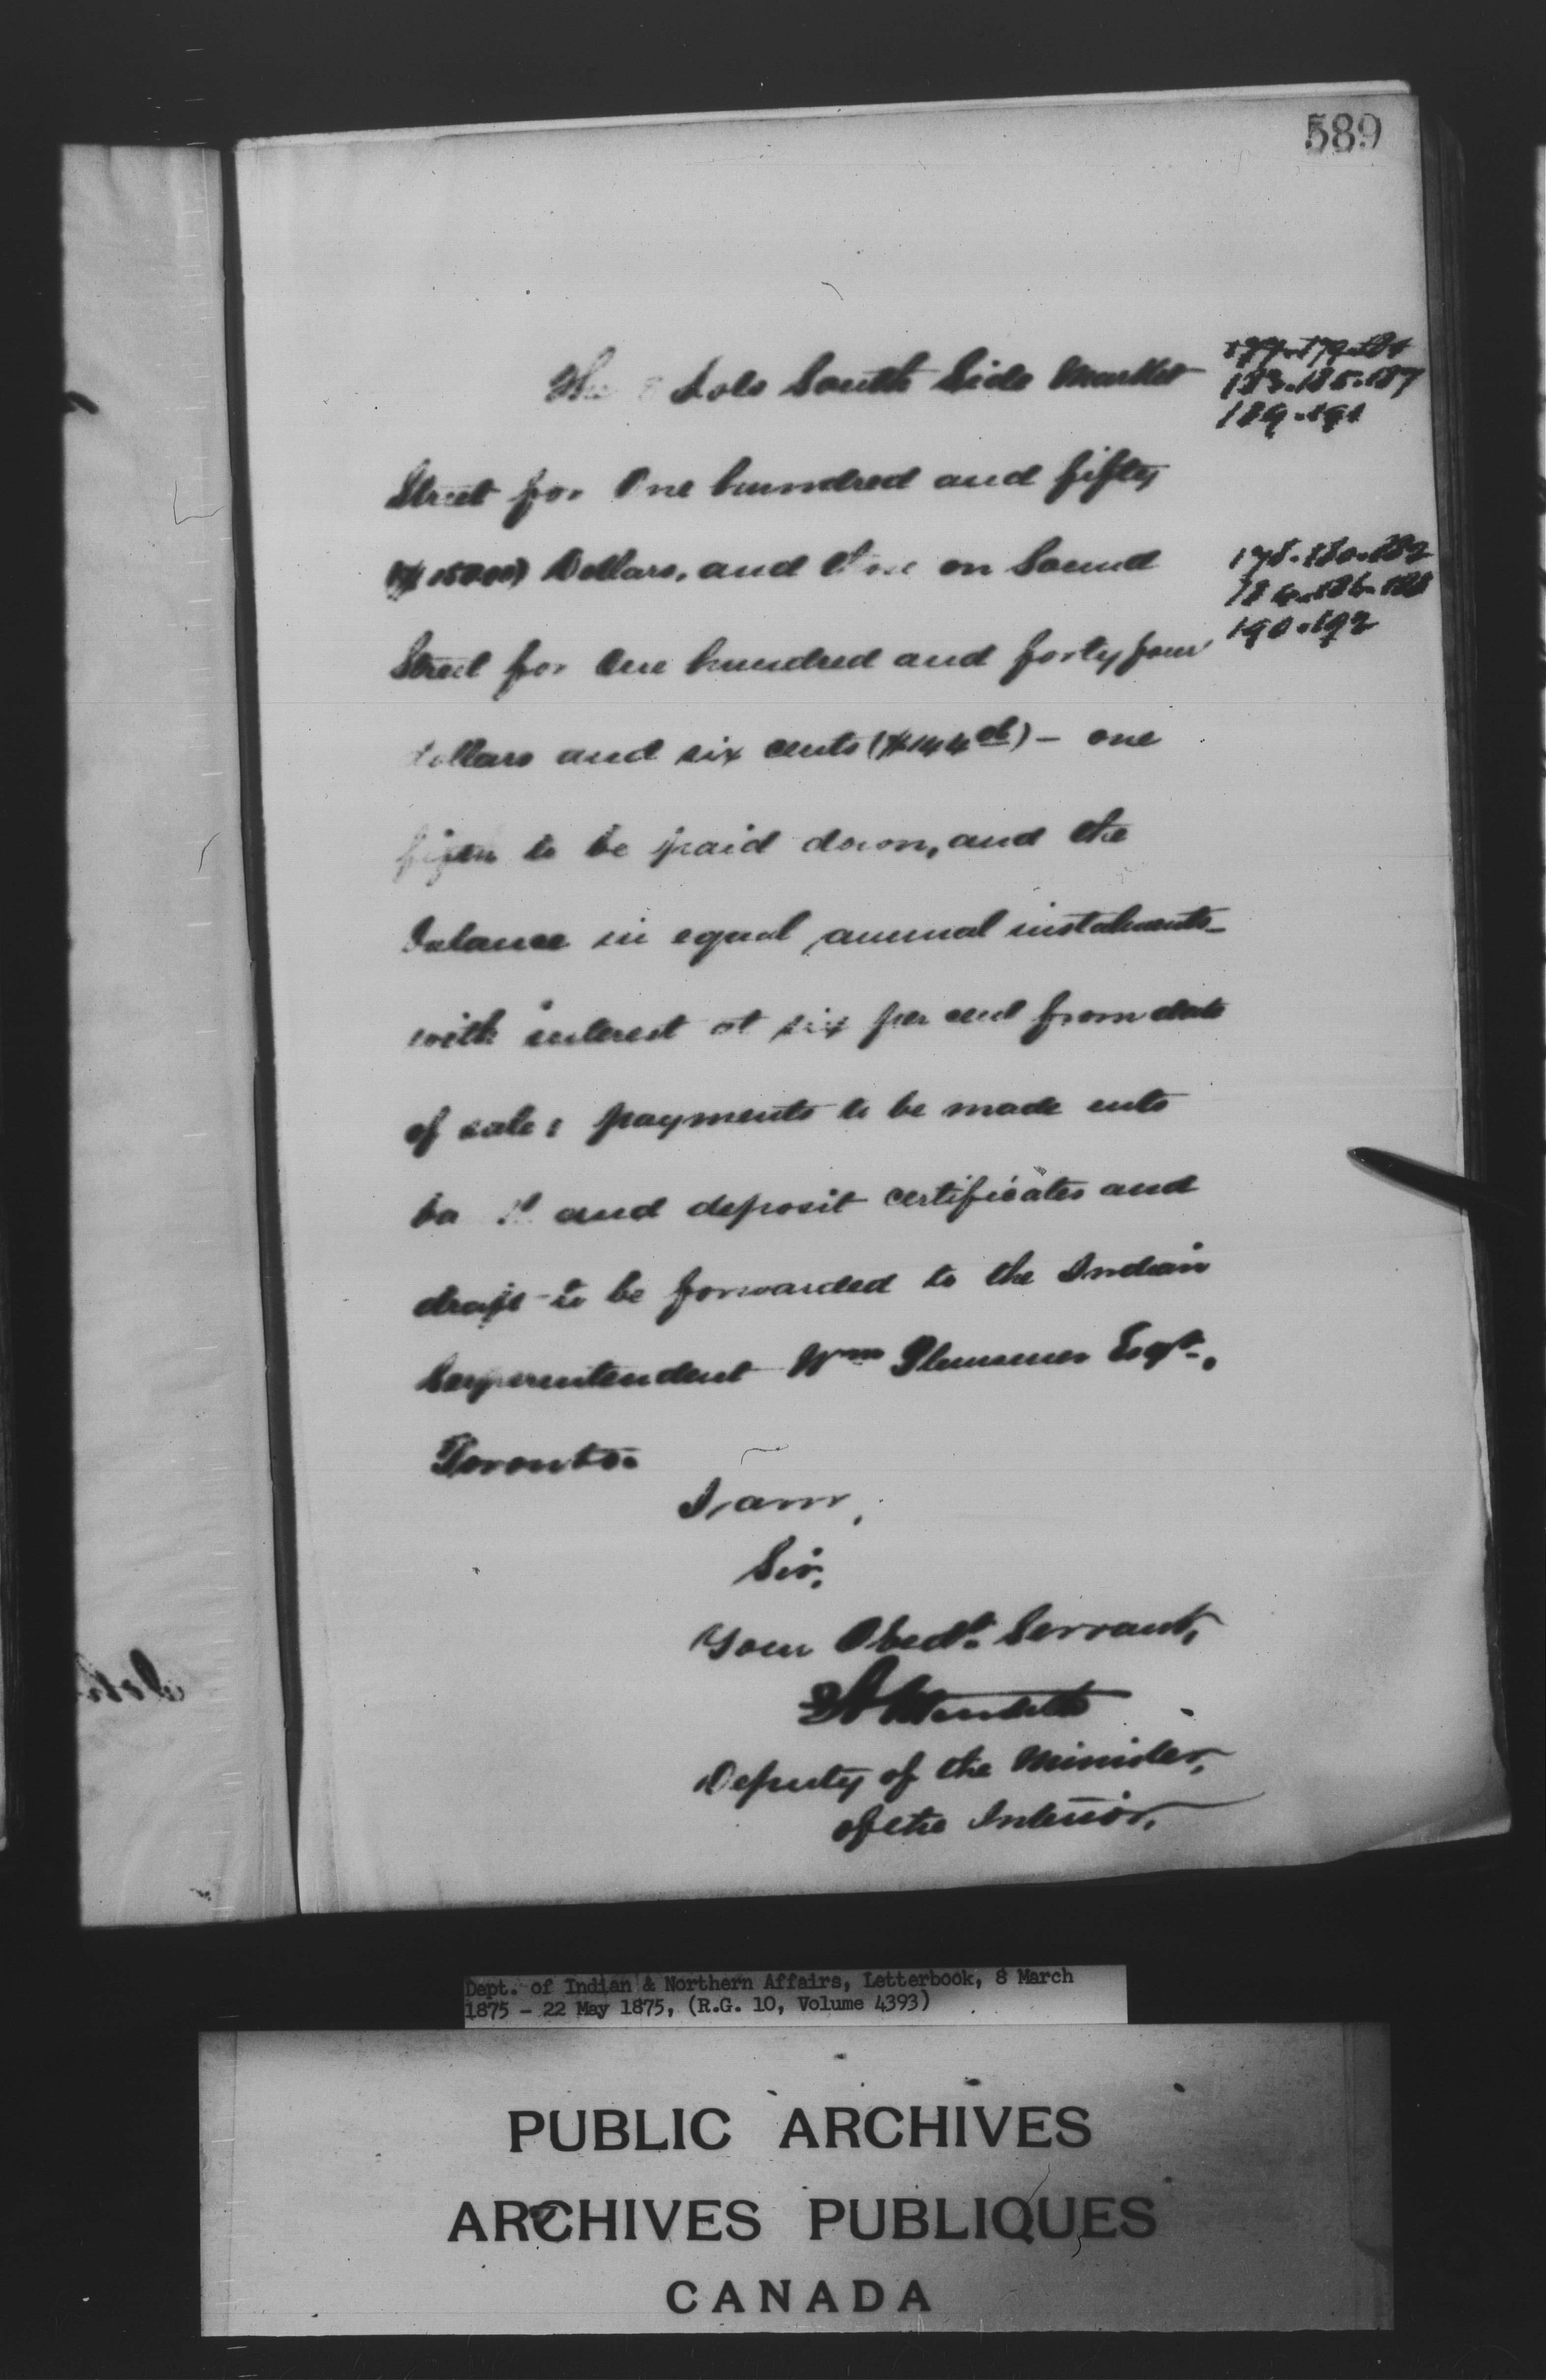 589
The 8 Lots South Side Market
177. 179. 181
183. 185. 187
189. 191
Street for One hundred and fifty
($150.00) Dollars, and those on Sound
178. 180. 182
184. 186. 188
190. 192
Street for One hundred and forty four
dollars and six cents ($144.06) – one
fifth to be paid down, and the
balance in equal annual instalments
with interest at six per cent from date
of sale; payments to be made into
and deposit certificates and
draft to be forwarded to the Indian
Superintendent Wm Plummer Esqr.,
Toronto.
I am,
Sir,
Your Obedt. Servant,
Deputy of the Minister,
of the Interior.
Dept. of Indian & Northern Affairs, Letterbook, 8 March
1875 – 22 May 1875, (R.G. 10, Volume 4393)
PUBLIC ARCHIVES
ARCHIVES PUBLIQUES
CANADA